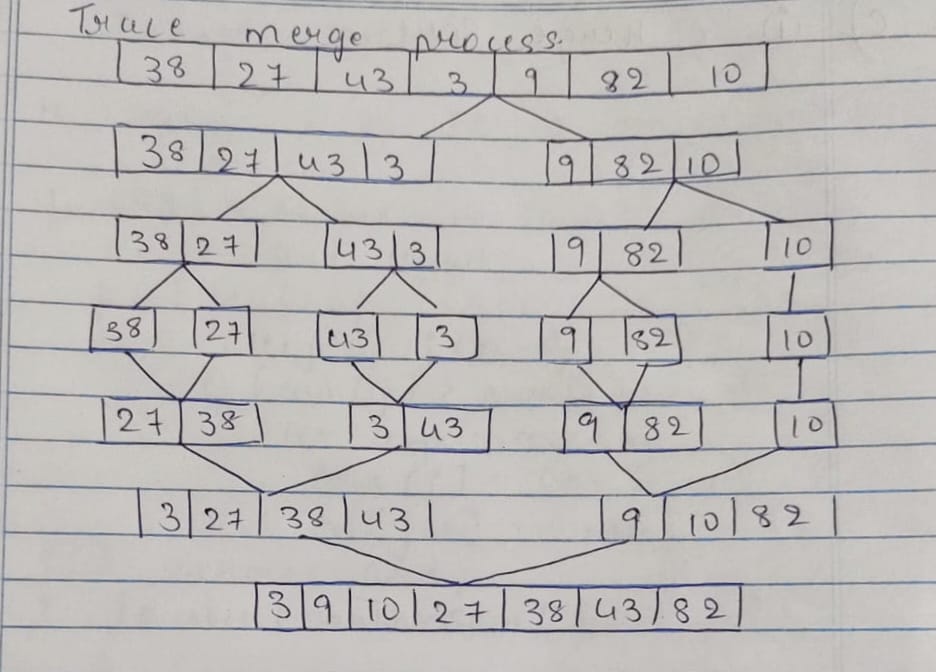 Trace merge process.
38 27 43 3 9 82 10
38 27 43 3 9 82 10
38 27 43 3 9 82 10
38 27 43 3 9 82 10
27 38 3 43 9 82 10
3 27 38 43 9 10 82
3 9 10 27 38 43 82